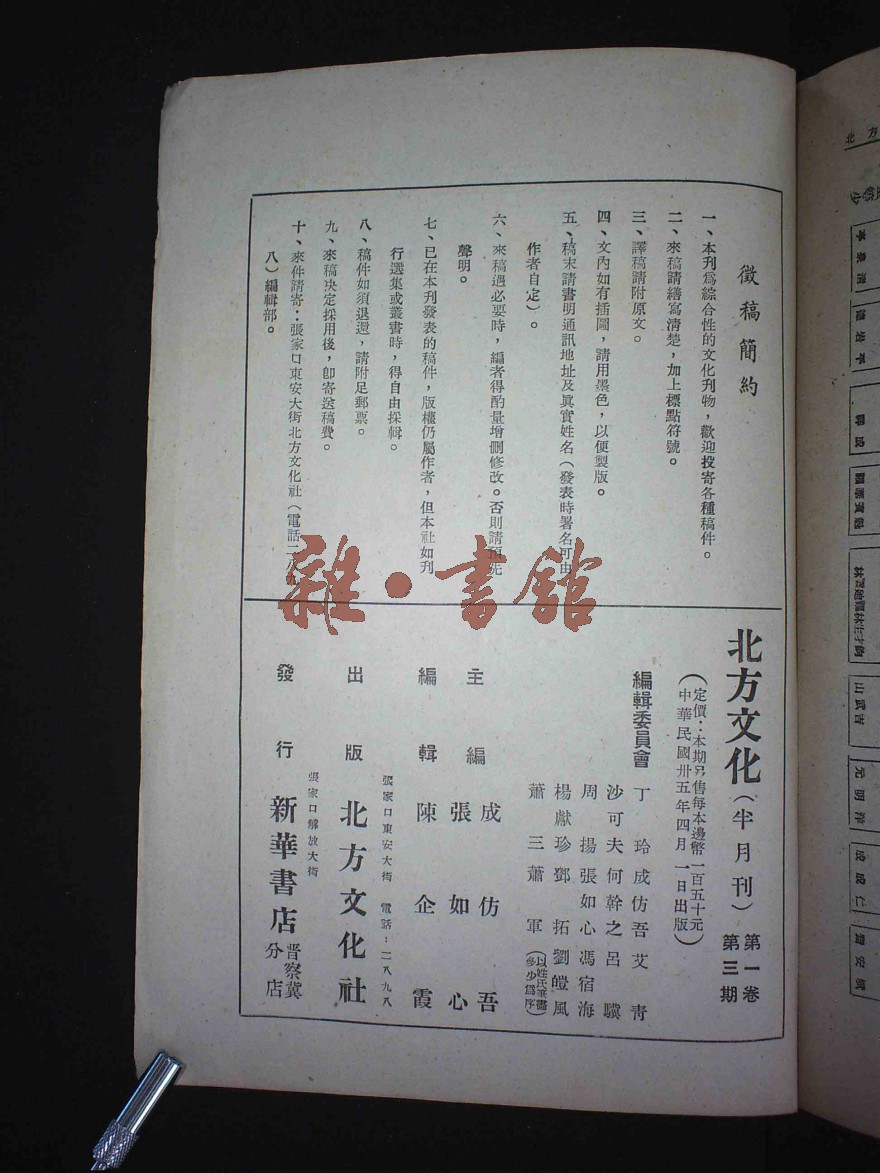 徵稿簡約
一、本刊爲綜合性的文化刊物，歡迎投寄各種稿件。
二、來稿請繕寫清楚，加上標點符號。
三、譯稿請附原文。
四、文內如有插圖，請用墨色，以便製版。
五、稿末請書明通訊地址及眞實姓名（發表時署名可由
作者自定）。
六、來稿遇必要時，編者得酌量增刪修改。否則請預先
聲明。
七、已在本刊發表的稿件，版權仍屬作者，但本社如刋
行選集或叢書時，得自由採輯。
八、稿件如須退還，請附足郵票。
九、來稿決定採用後，卽寄送稿費。
十、來件請寄：張家口東安大街北方文化社（電話二八九
八）編輯部。
北方文化（半月刊）第一卷
第三期
（定價：本期另售每本邊幣一百五十元
中華民國卅五年四月一日出版）
編輯委員會
丁玲 成仿吾 艾青
沙可夫 何幹之 呂驥
周揚 張如心 馮宿海
楊獻珍 鄧拓 劉皚風
蕭三 蕭軍（以姓氏筆畫
多少爲序）
主編 成仿吾
張如心
編輯 陳企霞
張家口東安大街 電話：二八九八
出版 北方文化社
張家口解放大街
發行 新華書店 晋察冀
分店
雜·書館
北方